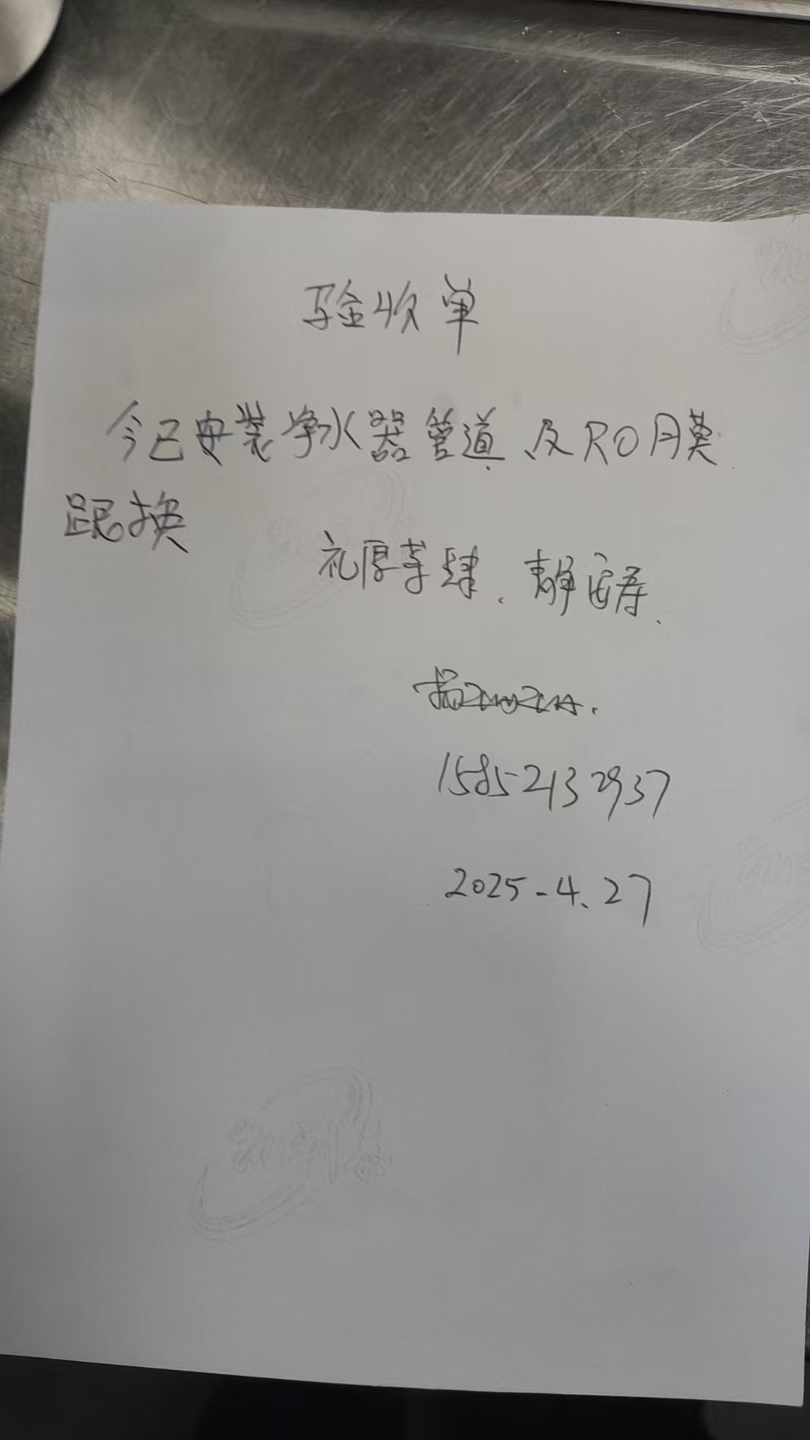 验收单
今已安装净水器管道、及RO膜
跟换
礼厚茶肆、静安寺、
15852132937
2025-4.27